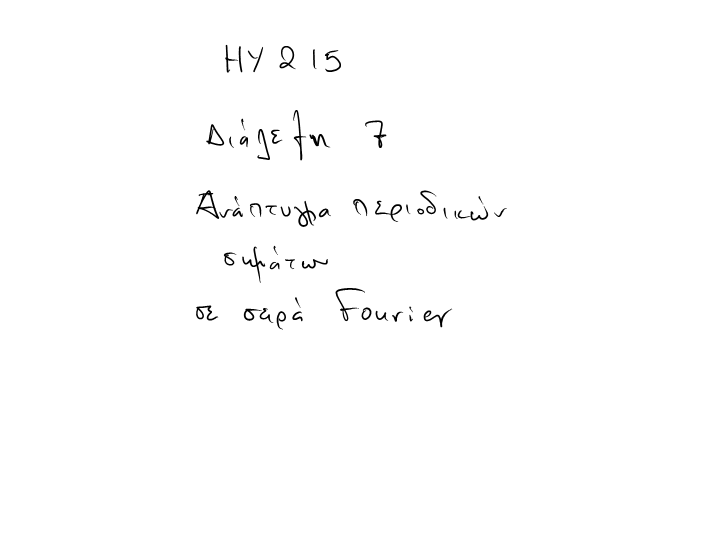 ΗΥ 215
Διάλεξη 7
Ανάπτυγμα περιοδικών
σημάτων
σε σειρά Fourier